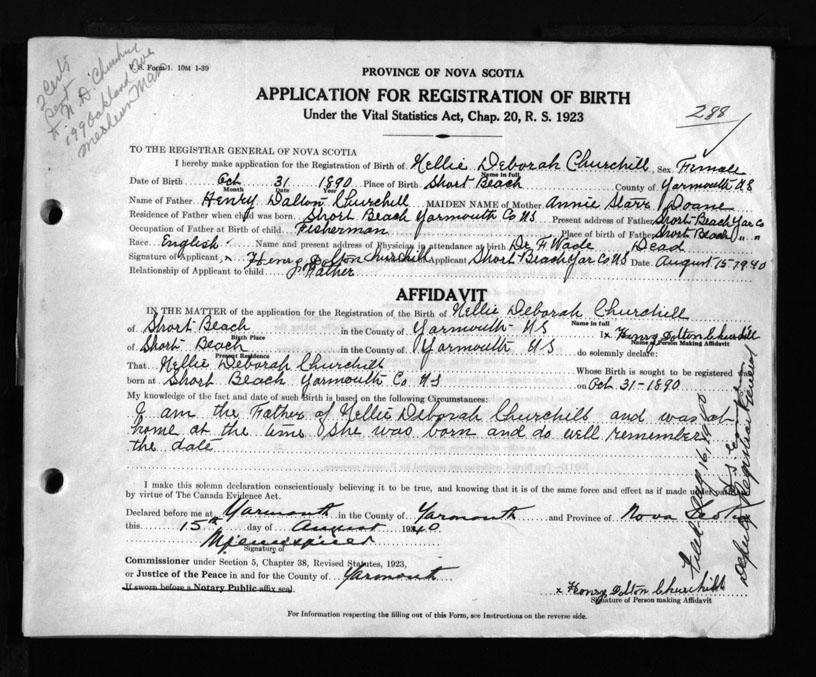 V. S. Form 1. 10M 1-39
Sent
N. D. Churchill
199 Oakland Ave
PROVINCE OF NOVA SCOTIA
APPLICATION FOR REGISTRATION OF BIRTH
Under the Vital Statistics Act, Chap. 20, R. S. 1923
288
TO THE REGISTRAR GENERAL OF NOVA SCOTIA
I hereby make application for the Registration of Birth of Nellie Deborah Churchill, Sex Female
Name in full
Date of Birth Oct 31 1890 Place of Birth Short Beach County of Yarmouth NS
Month Date Year
Name of Father Henry Dalton Churchill MAIDEN NAME of Mother Annie Starr Doane
Residence of Father when child was born Short Beach Yarmouth Co NS Present address of Father Short Beach Yar Co
Occupation of Father at Birth of child Fisherman Place of birth of Father Short Beach " "
Race English Name and present address of Physician in attendance at birth Dr. F Wade Dead
Signature of Applicant, x Henry Dolton Churchill Applicant Short Beach Yar Co NS Date August 15-1940
Relationship of Applicant to child Father
AFFIDAVIT
IN THE MATTER of the application for the Registration of the Birth of Nellie Deborah Churchill
Name in full
of Short Beach in the County of Yarmouth NS I x Henry Dolton Churchill
Birth Place Name of Person Making Affidavit
of Short Beach in the County of Yarmouth NS do solemnly declare:
Present Residence
That Nellie Deborah Churchill Whose Birth is sought to be registered
born at Short Beach Yarmouth Co NS on Oct 31-1890
My knowledge of the fact and date of such Birth is based on the following Circumstances:
I am the Father of Nellie Deborah Churchill and was at
home at the time she was born and do well remember
the date
I make this solemn declaration conscientiously believing it to be true, and knowing that it is of the same force and effect as if made under oath
by virtue of The Canada Evidence Act.
Declared before me at Yarmouth in the County of Yarmouth and Province of Nova Scotia
this 15th day of August 1940
Signature of
Commissioner under Section 5, Chapter 38, Revised Statutes, 1923,
or Justice of the Peace in and for the County of Yarmouth
If sworn before a Notary Public affix seal.
x Henry Dolton Churchill
Signature of Person making Affidavit
Filed Aug 16, 1940
Deputy Registrar General
For Information respecting the filling out of this Form, see Instructions on the reverse side.